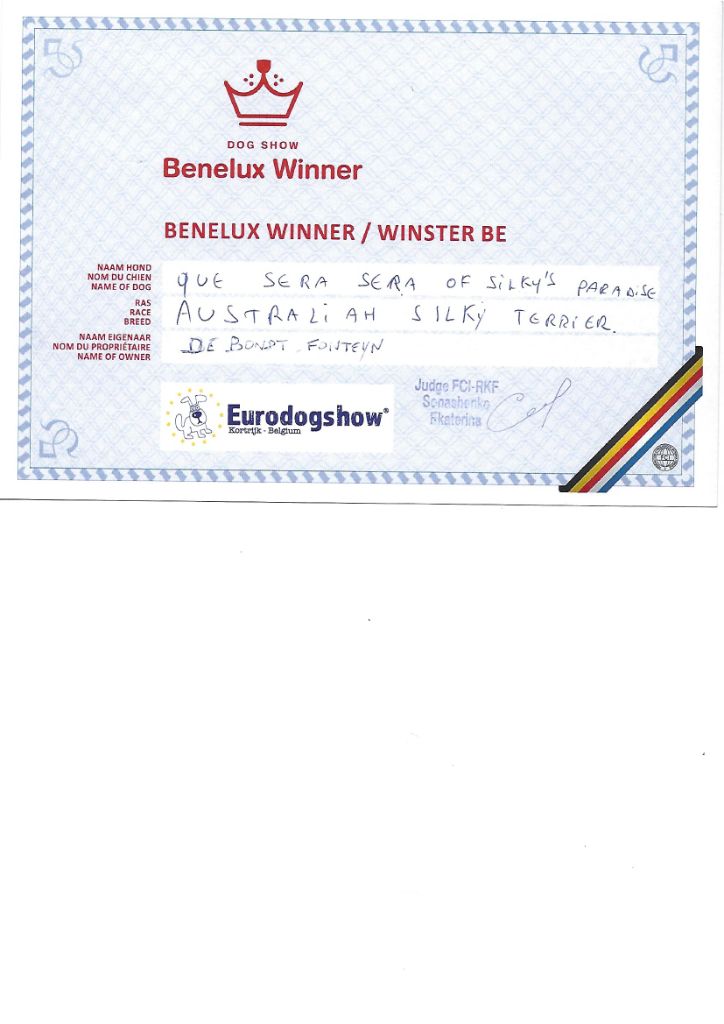 DOG SHOW
Benelux Winner
BENELUX WINNER / WINSTER BE
NAAM HOND
NOM DU CHIEN
NAME OF DOG
QUE SERA SERA OF SiLKY'S PARADiSE
RAS
RACE
BREED
AUSTRALiAH SILKY TERRiER.
NAAM EIGENAAR
NOM DU PROPRIÉTAIRE
NAME OF OWNER
DE BONDT - FONTEYN
Eurodogshow®
Kortrijk - Belgium
Judge FCI-RKF
Senashenko
Ekaterina
FCI